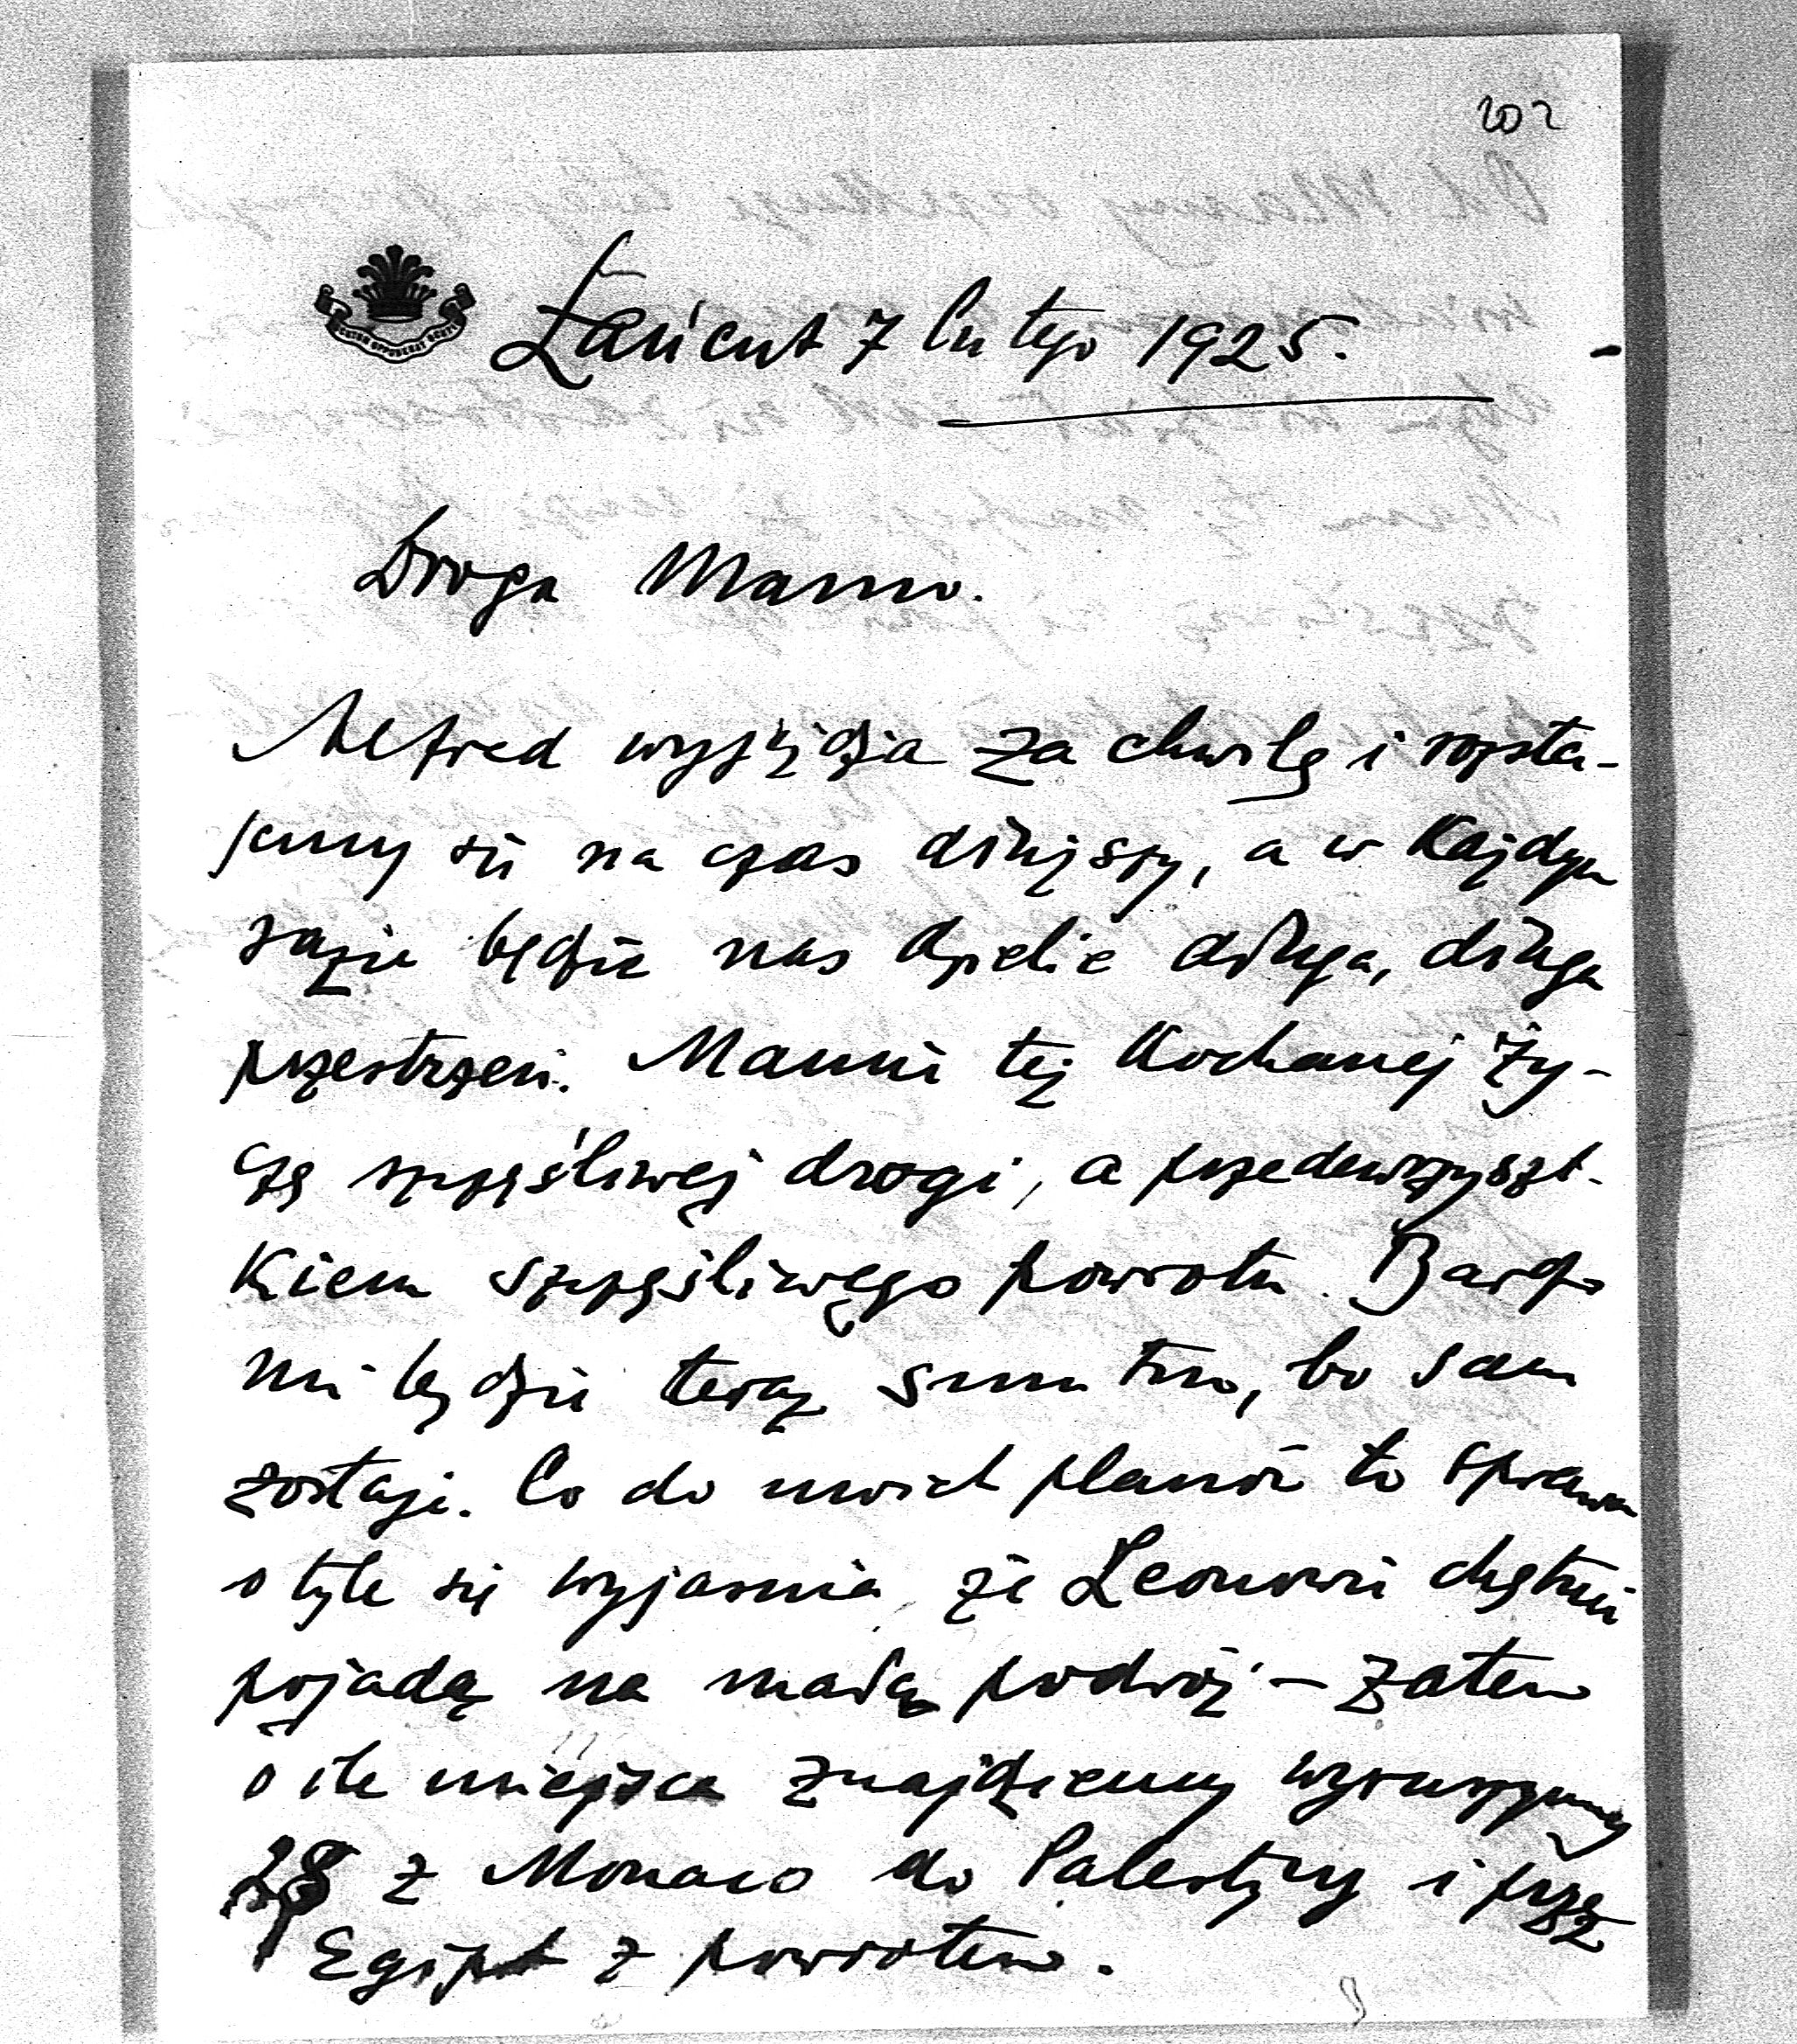 202
Łańcut 7 lutego 1925.
Droga Mamo.
Alfred wyjeżdża za chwilę i rozsta-
jemy się na czas dłuższy, a w każdym
razie będzie nas dzielić długa, długa
przestrzeń. Mamie tej kochanej ży-
czę szczęśliwej drogi, a przedewszyst-
kiem szczęśliwego powrotu. Bardzo
mi będzie teraz smutno, bo sam
zostaję. Co do moich planów to sprawa
o tyle się wyjaśnia, że Leonowie chętnie
pojadą na małą podróż – zatem
o ile miejsca znajdziemy wyruszymy
28 z Monaco do Palestyny i przez
Egipt z powrotem.